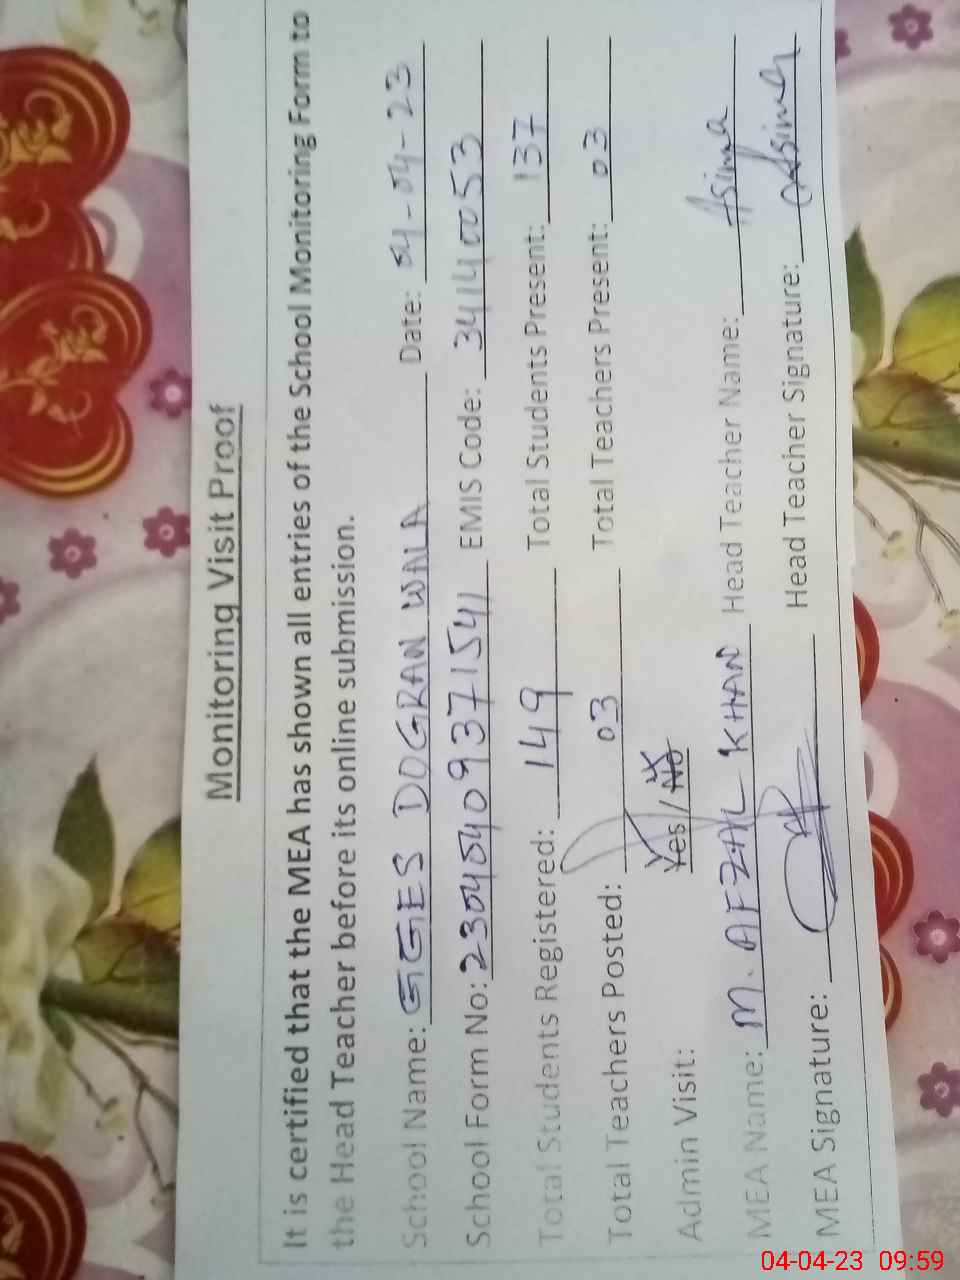 Monitoring Visit Proof
It is certified that the MEA has shown all entries of the School Monitoring Form to
the Head Teacher before its online submission.
School Name: GGES DOGRAN WALA Date: 04-04-23
School Form No: 23040409371541 EMIS Code: 34140053
Total Students Registered: 149 Total Students Present: 137
Total Teachers Posted: 03 Total Teachers Present: 03
Admin Visit: Yes / No
MEA Name: M. AFZAL KHAN Head Teacher Name: Asima
MEA Signature: Head Teacher Signature: Asima
04-04-23 09:59